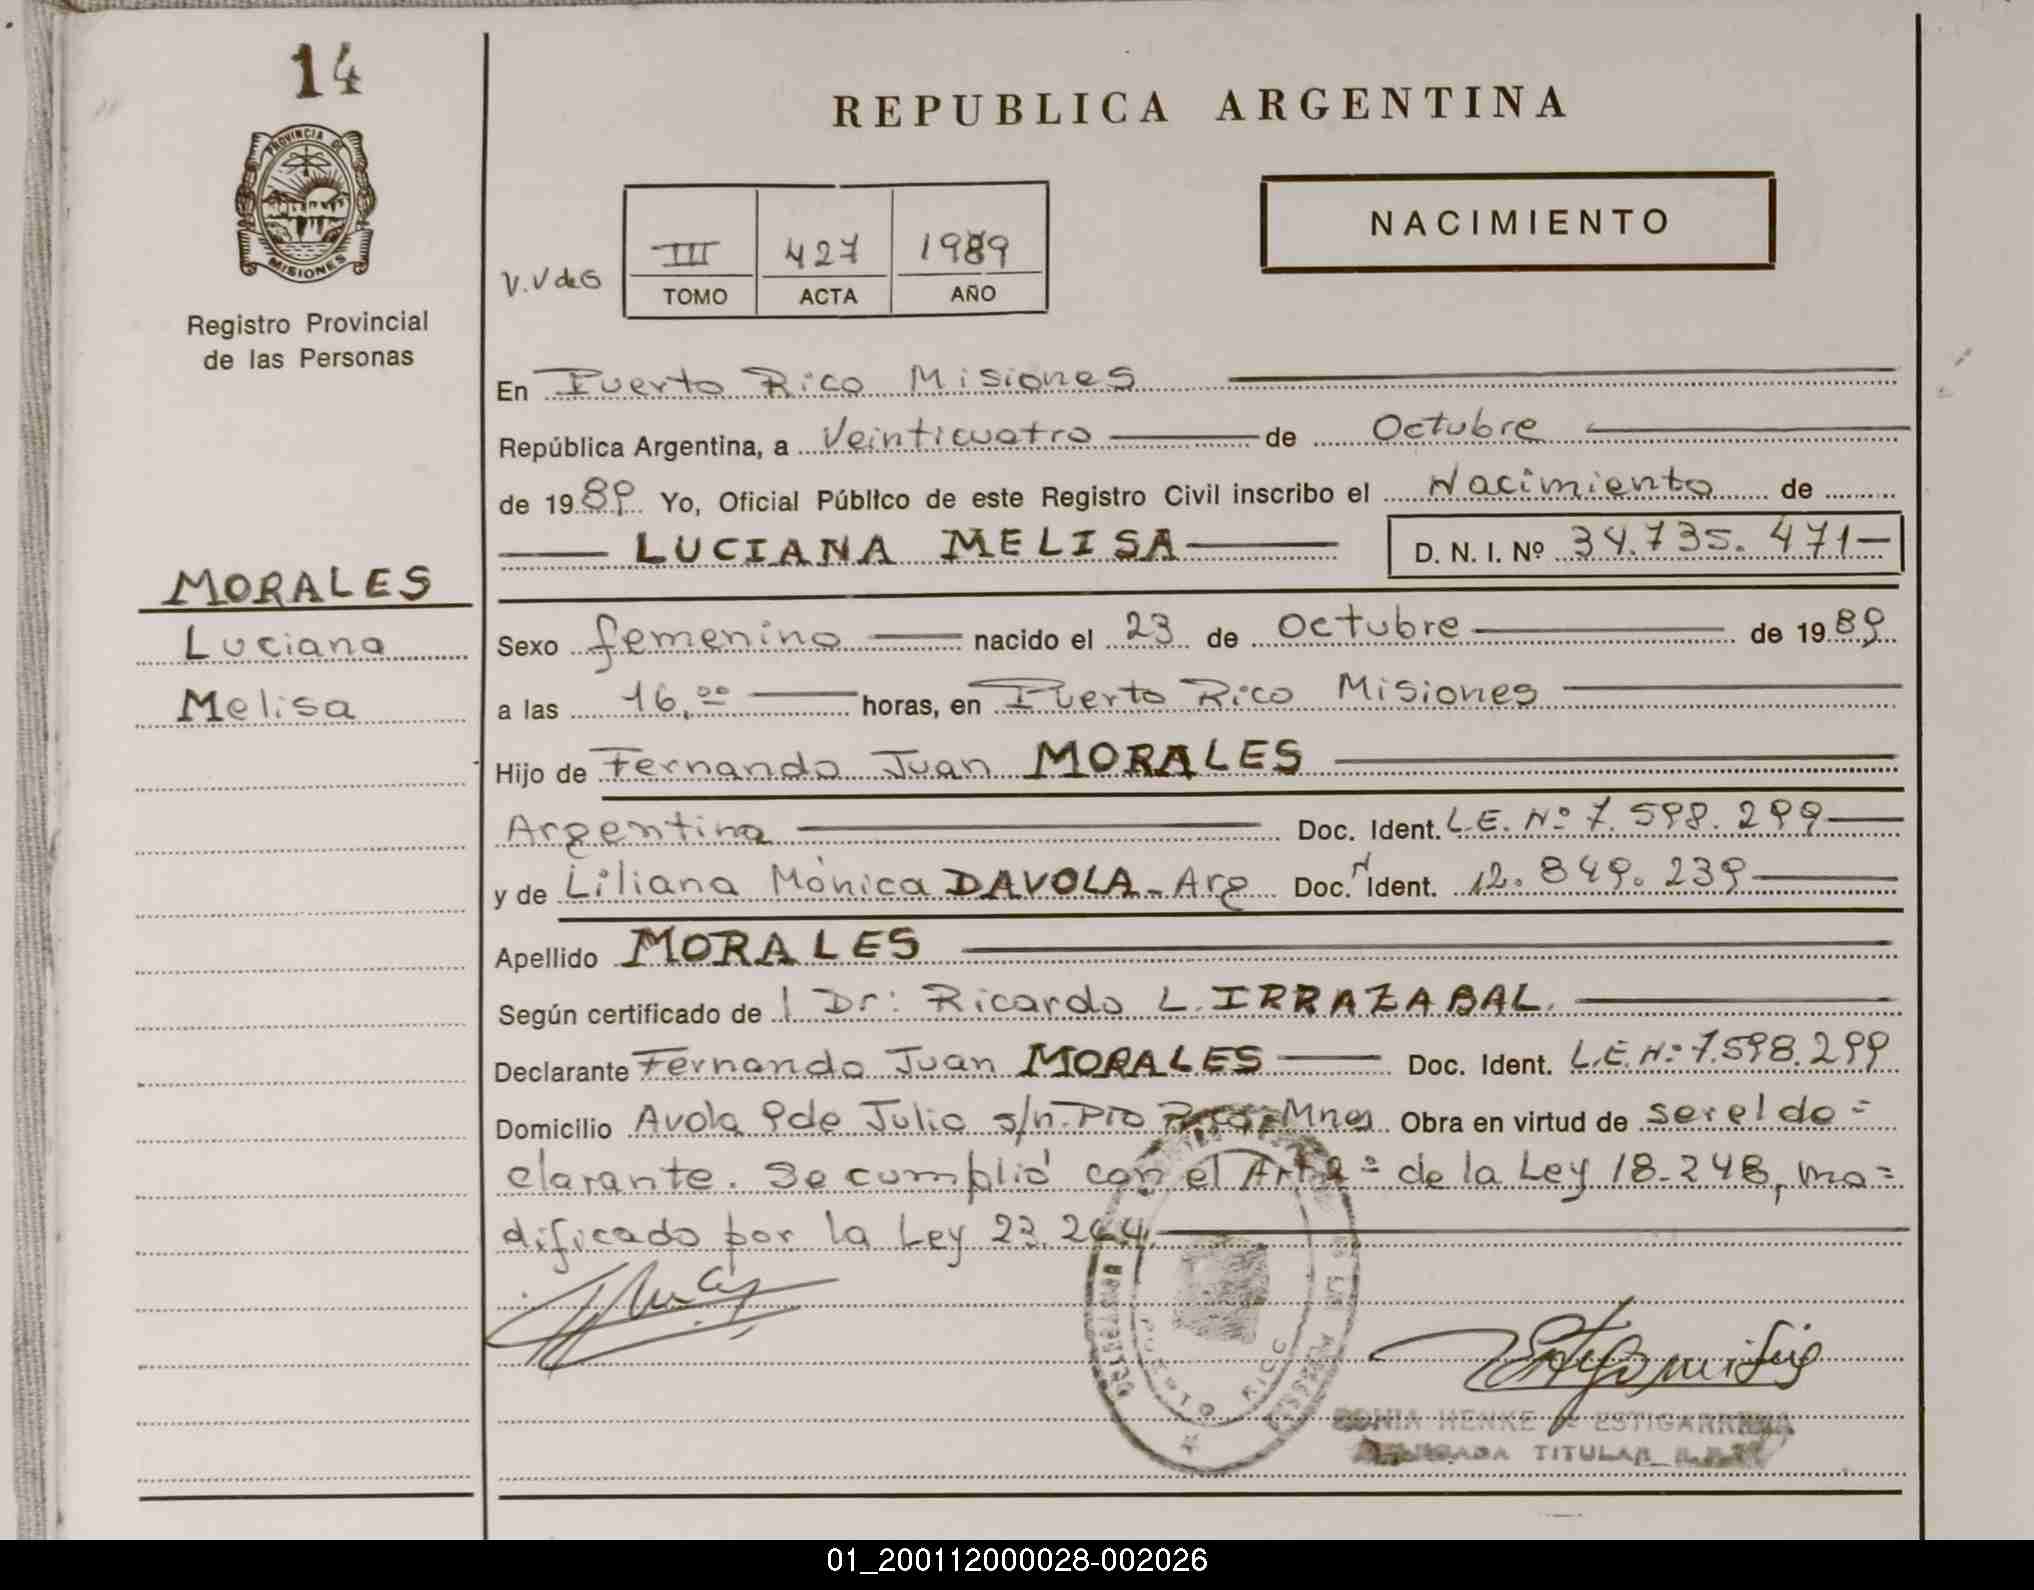 14
PROVINCIA DE
MISIONES
Registro Provincial
de las Personas
MORALES
Luciana
Melisa
REPUBLICA ARGENTINA
NACIMIENTO
V.V de G
III 427 1989
TOMO ACTA AÑO
En Puerto Rico Misiones
República Argentina, a Veinticuatro de Octubre
de 1989 Yo, Oficial Público de este Registro Civil inscribo el Nacimiento de
LUCIANA MELISA D. N. I. Nº 34.735.471
Sexo femenino nacido el 23 de Octubre de 1989
a las 16,00 horas, en Puerto Rico Misiones
Hijo de Fernando Juan MORALES
Argentina Doc. Ident. L.E. Nº 7.598.299
y de Liliana Mónica DAVOLA - Arg Doc. Ident. 12.849.239
Apellido MORALES
Según certificado de l Dr: Ricardo L. IRRAZABAL.
Declarante Fernando Juan MORALES Doc. Ident. L.E. Nº 7.598.299
Domicilio Avda 9 de Julio s/n. Pto Rico, Mnes Obra en virtud de ser el de=
clarante. Se cumplió con el Art 2º de la Ley 18.248, mo=
dificado por la Ley 23.264.
PUERTO RICO
SONIA HENKE de ESTIGARRIBIA
DELEGADA TITULAR
01_200112000028-002026